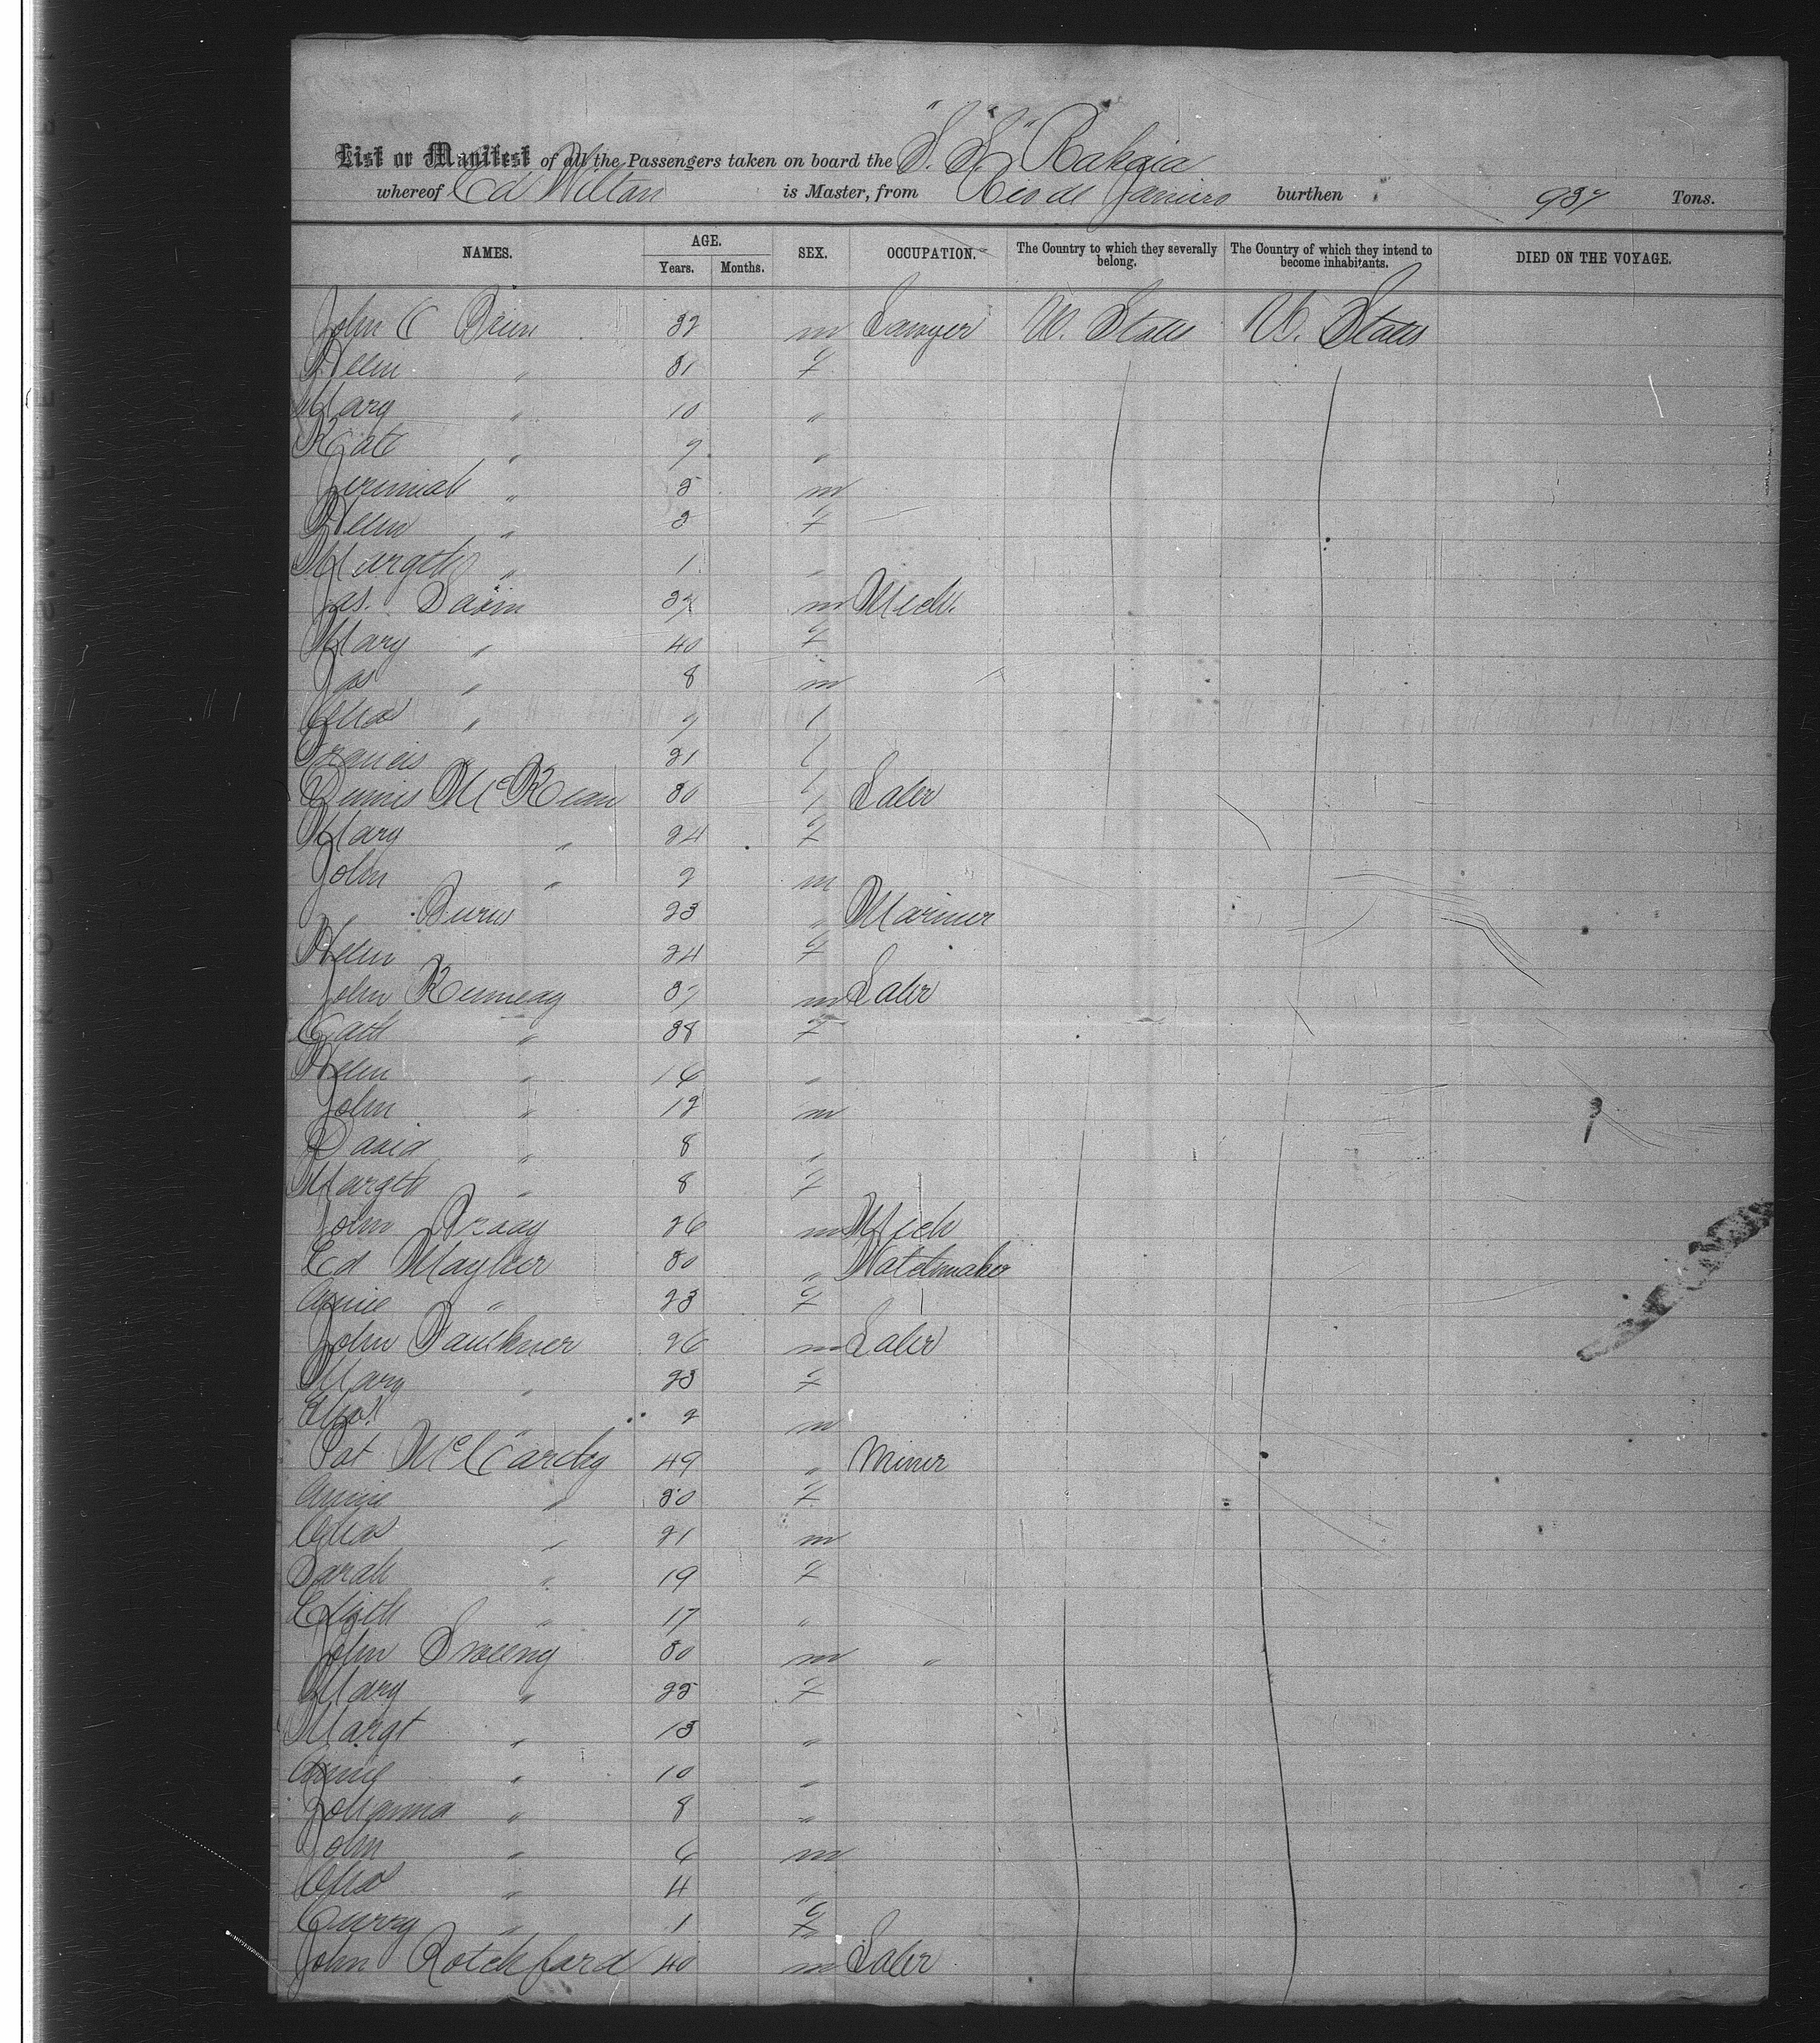 List or Manifest of all the Passengers taken on board the "S. S." Rakaia
whereof Ed Wilton is Master, from Rio de Janeiro burthen 937 Tons.
NAMES. AGE. SEX. OCCUPATION. The Country to which they severally belong. The Country of which they intend to become inhabitants. DIED ON THE VOYAGE.
Years. Months.
John C 32 m Lawyer U. States U. States
Helen " 31 f
Mary " 10 "
Kate " 7 "
Jeremiah " 5 m
Helen " 3 f
Margth " 1 "
Jas. m Mech.
Mary " 40 f
Jas " 8 m
Chas " 7
Francis " 21
Dennis McKean 30 Labr
Mary " 24 f
John " 2 m
" Burns 23 " Mariner
Helen 24 f
John 37 m Labr
Cath " 38 f
Helen " 16 "
John " 12 m
David " 8 "
Margth " 8 f
John 26 m Mech
Ed Mayher 30 " Watchmaker
Annie " 23 f
John Faulkner 26 m Labr
Mary " 23 f
2 m
Pat McCarthy 49 " Miner
Annie " 50 f
Chas " 21 m
Sarah " 19 f
Elizth " 17 "
John Sweeny 30 m "
Mary " 25 f
Margt " 13 "
Annie " 10 "
Johanna " 8 "
John " 6 m
Chas " 4 "
" 1 f
John Rotchford 40 m Labr
KODVKSVEELINAVEE